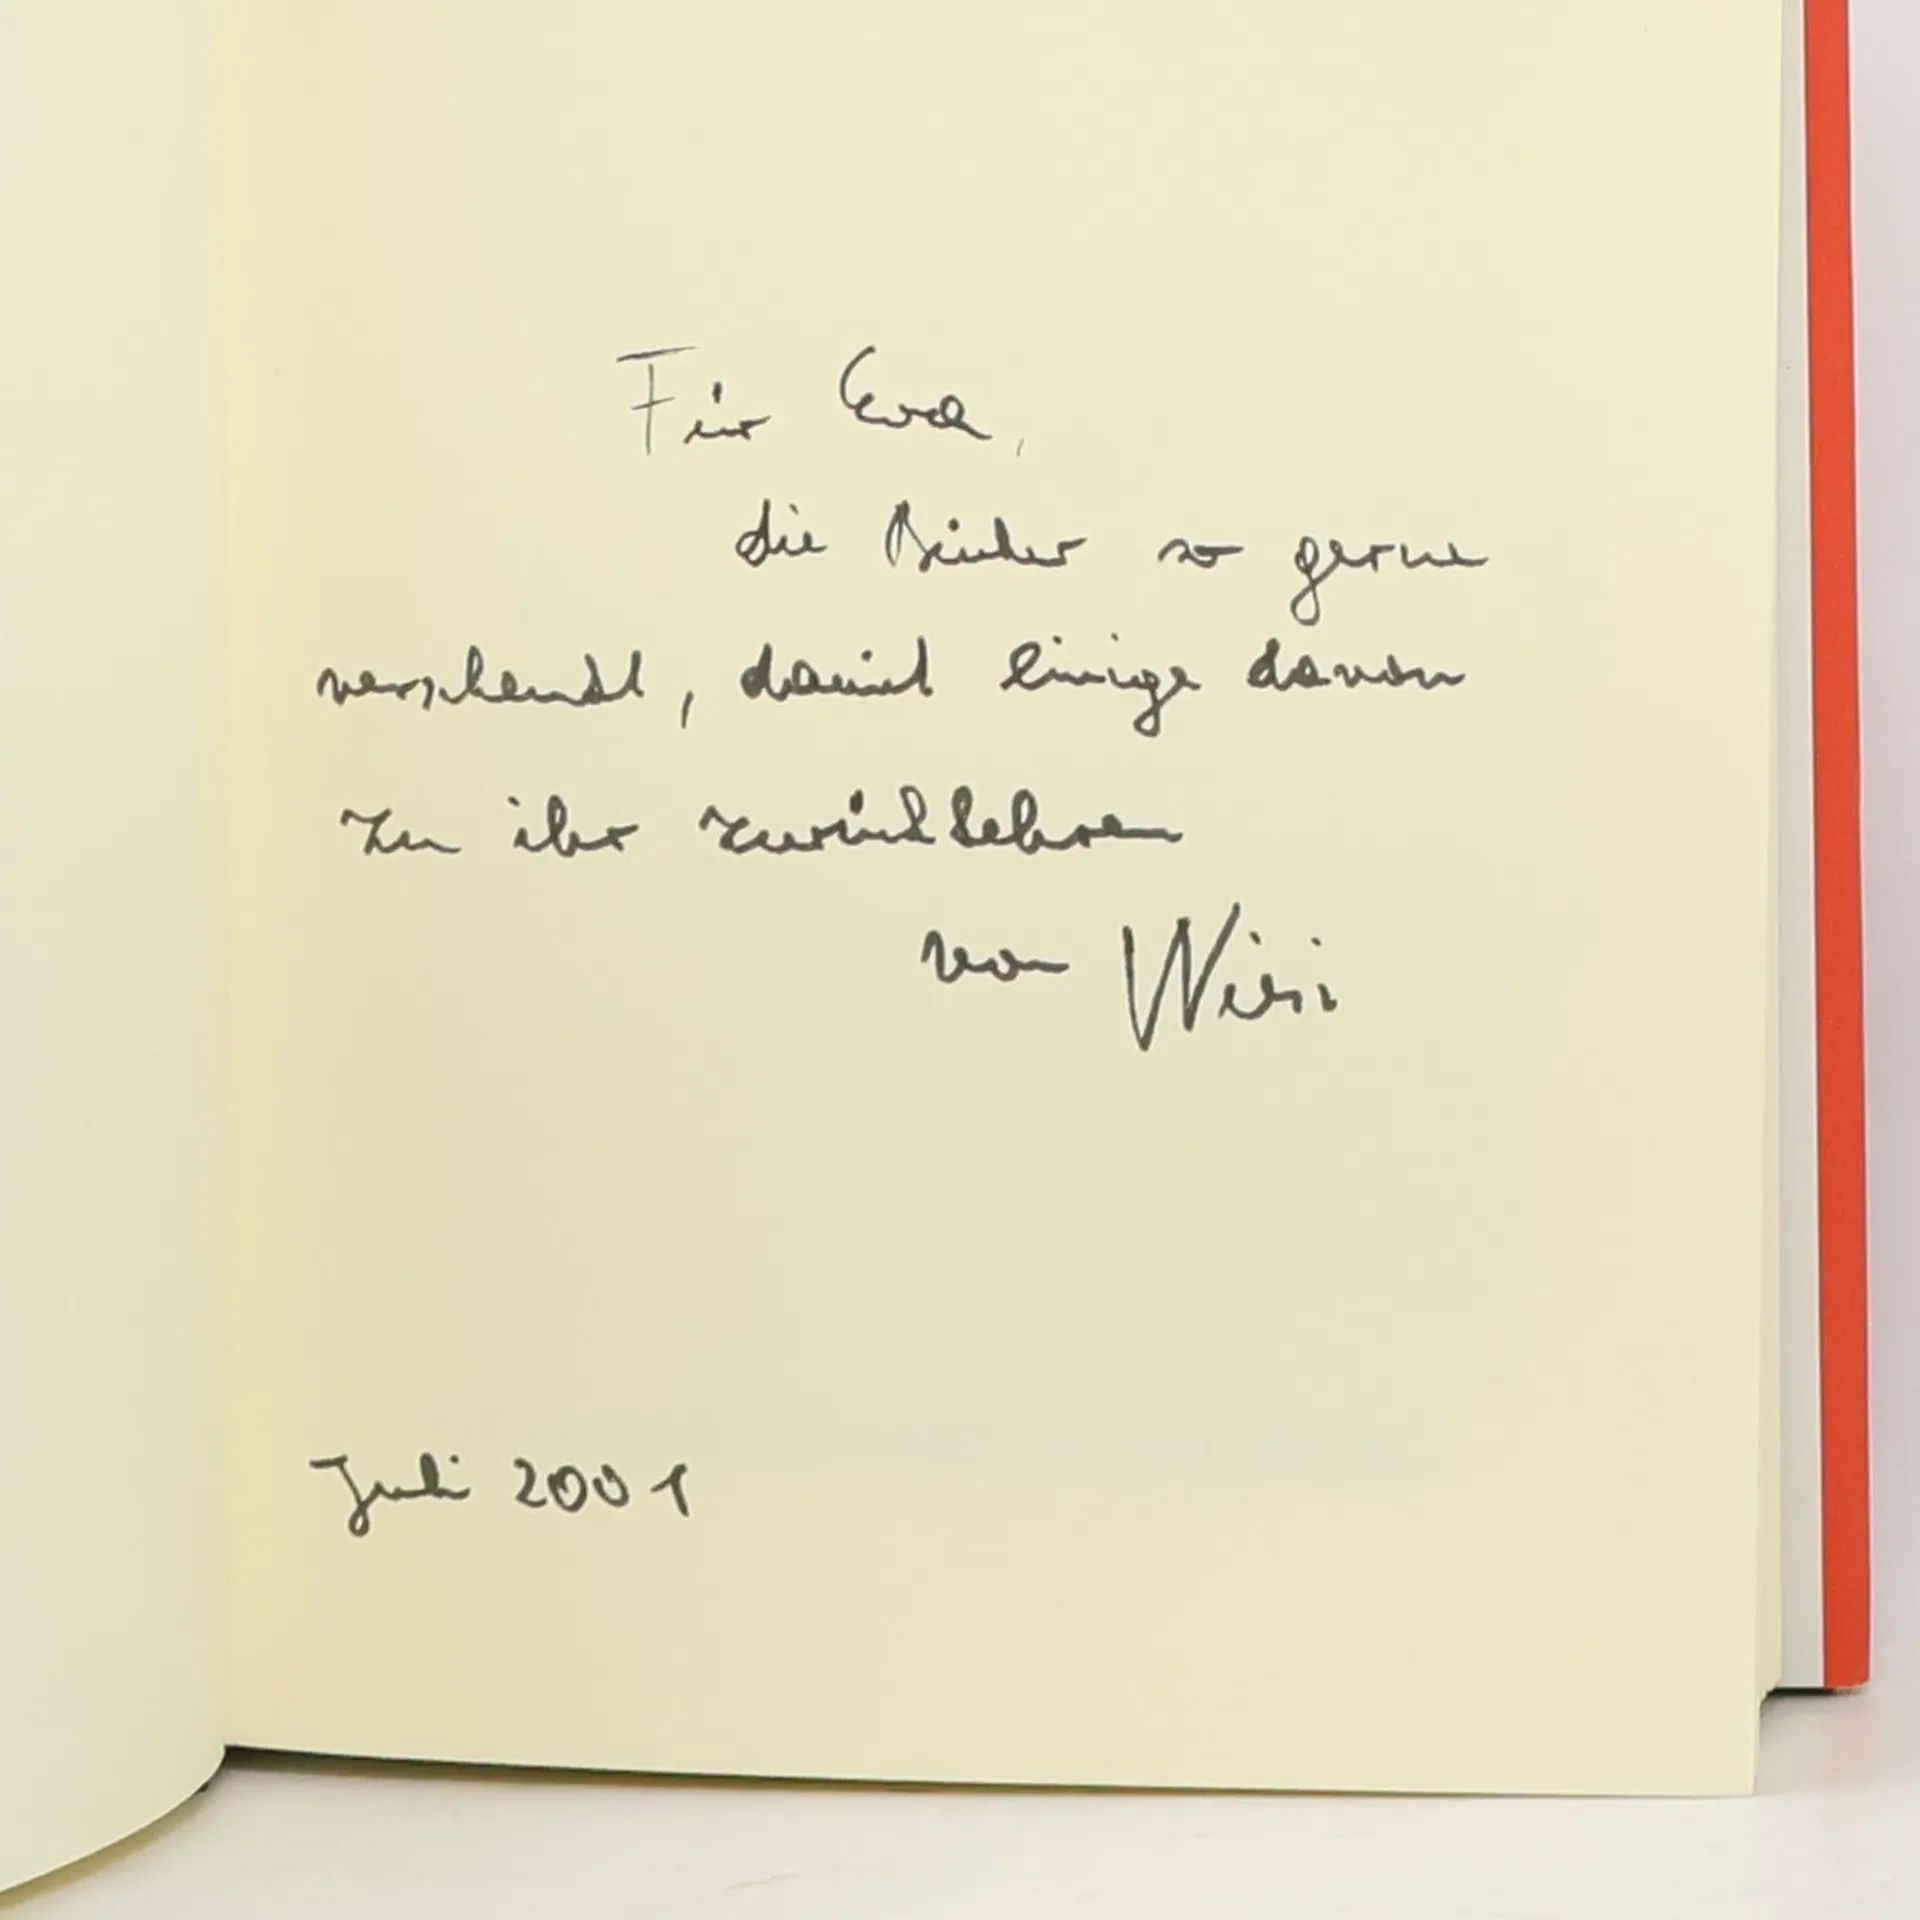 Für Eva,
die Bücher so gerne
verschenkt, damit einige davon
zu ihr zurückkehren
von
Juli 2001